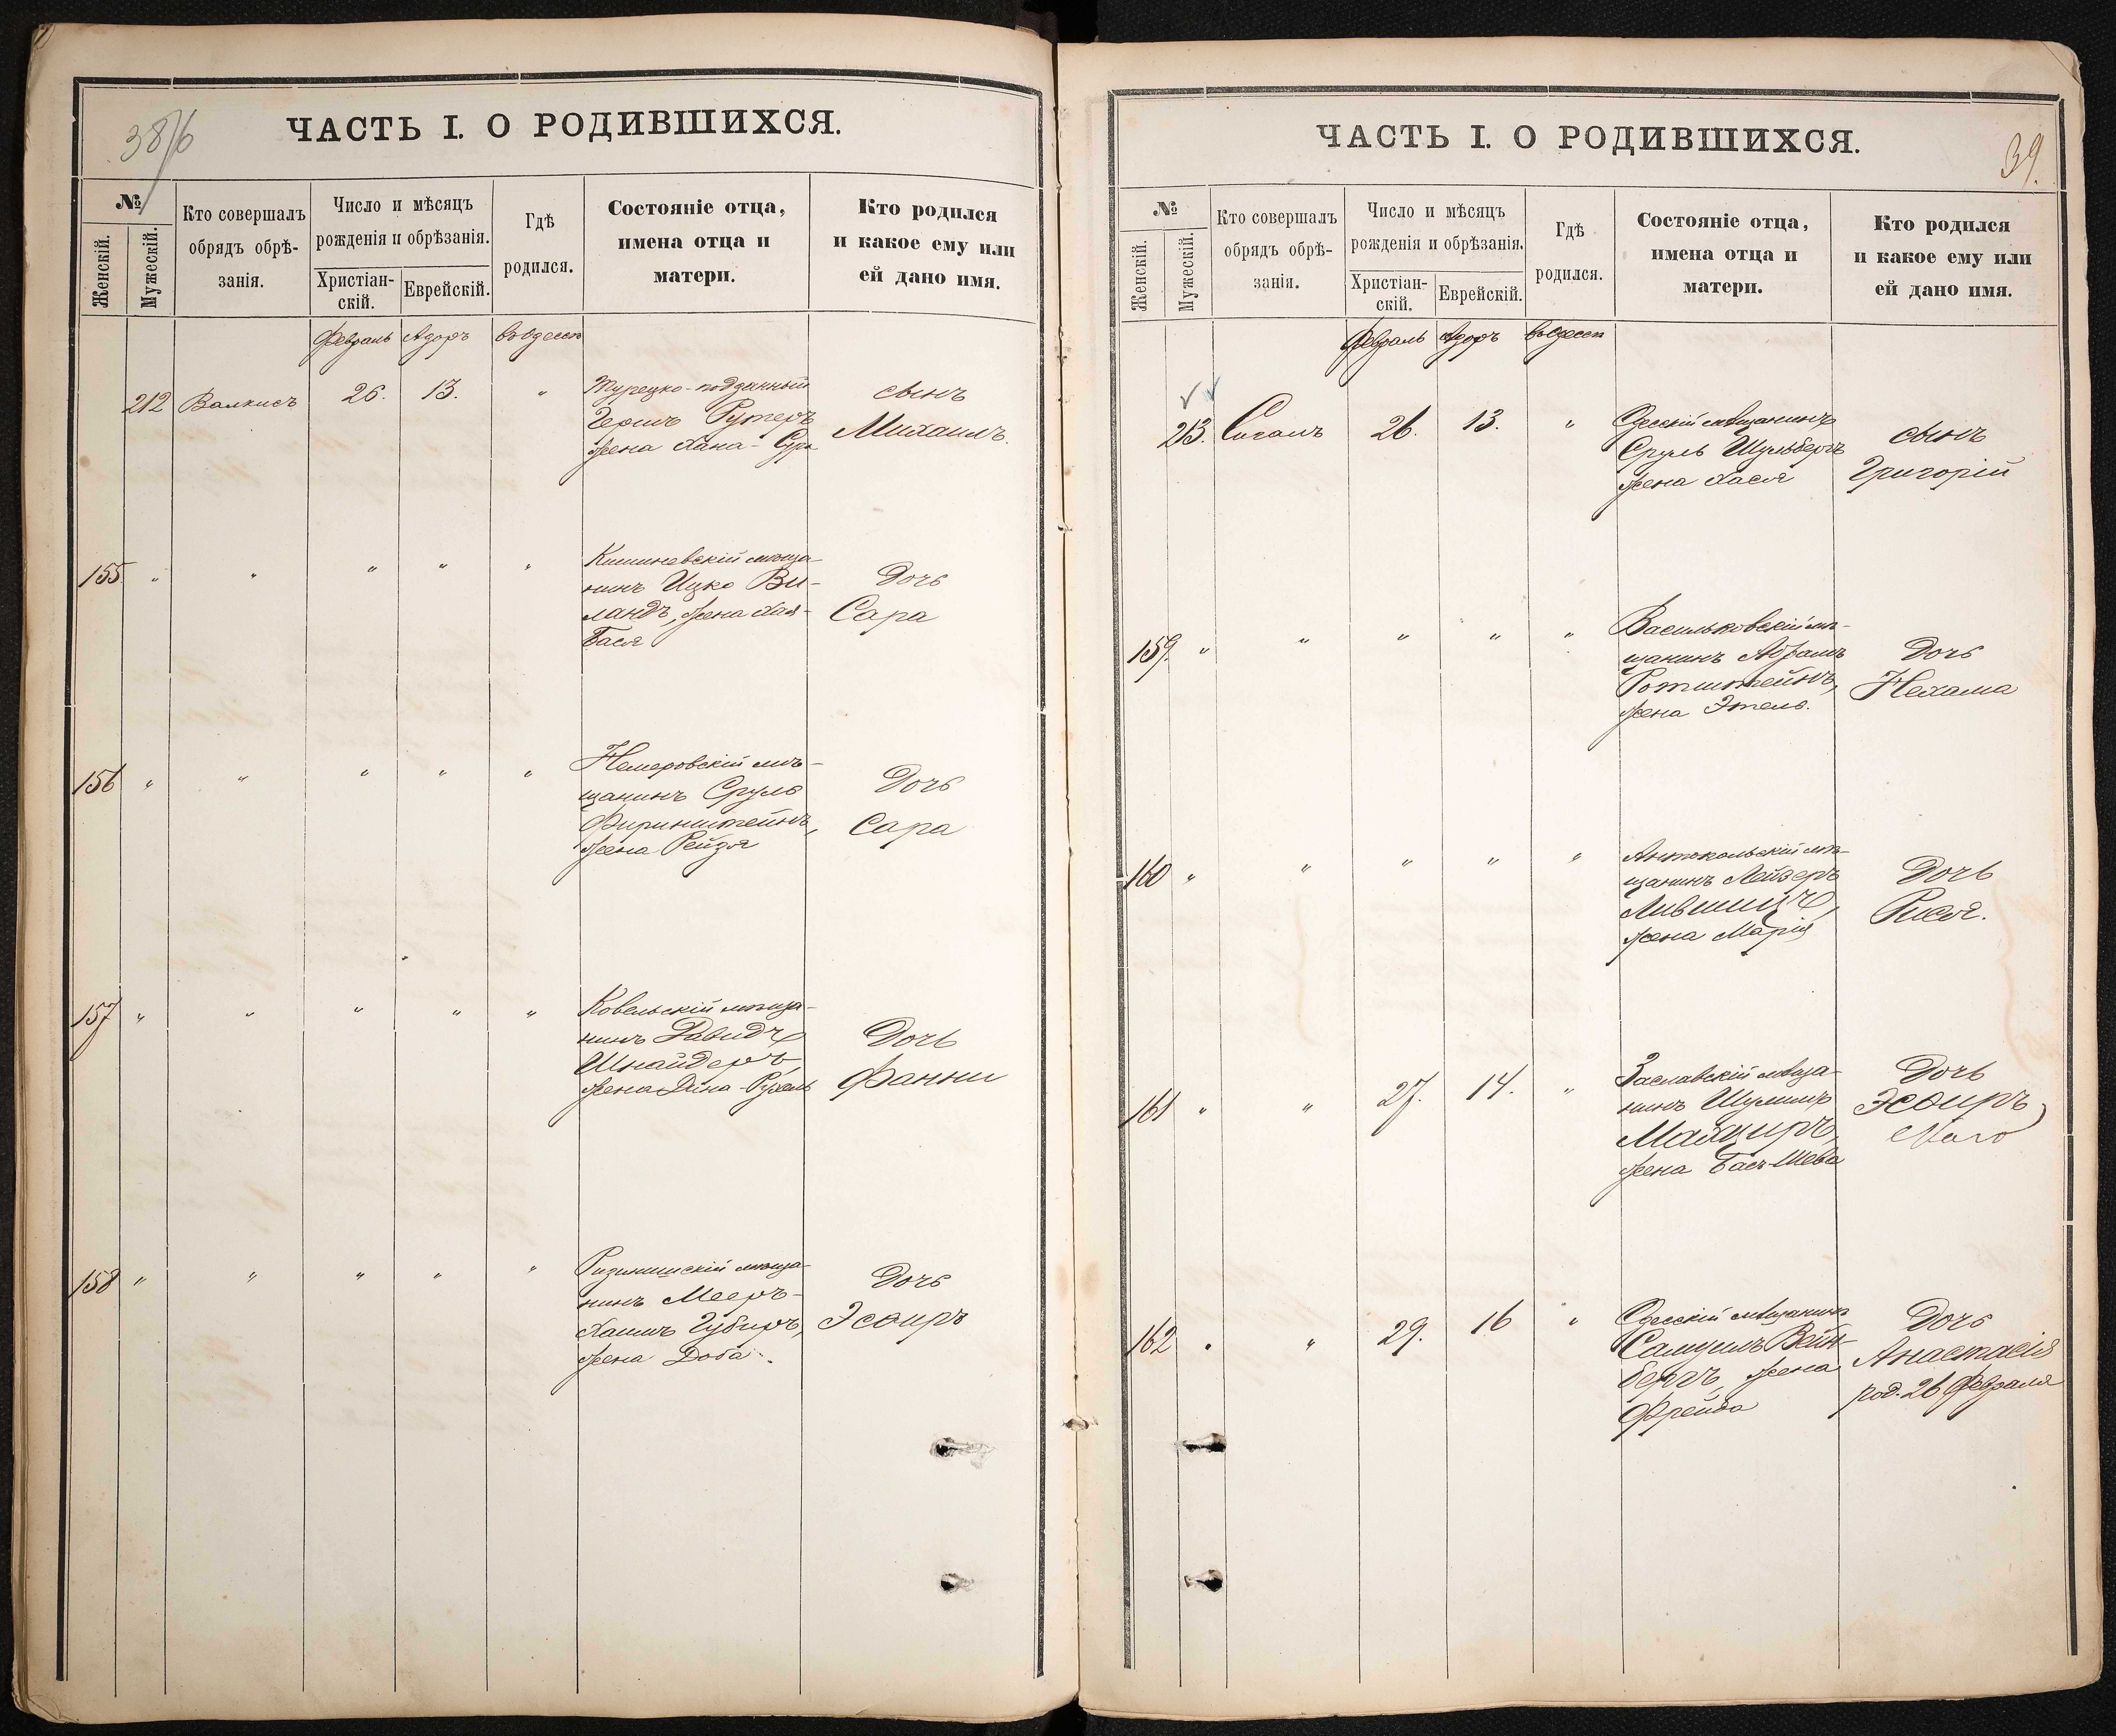 38/б
ЧАСТЬ I. О РОДИВШИХСЯ.
№
Женскій.
Мужескій.
Кто совершалъ
обрядъ обрѣ-
занія.
Число и мѣсяцъ
рожденія и обрѣзанія.
Христіан-
скій.
Еврейскій.
Гдѣ
родился.
Состояніе отца,
имена отца и
матери.
Кто родился
и какое ему или
ей дано имя.
Февраль Адоръ въ Одессѣ
212 Валкисъ 26. 13. "
Турецко-подданный
Гершъ Рутеръ
жена Хана-Сура
сынъ
Михаилъ.
155 " " " " "
Кишиневскій мѣща-
нинъ Ицко Ви-
ландъ, жена Хая-
Бася
Дочь
Сара
156 " " " " "
Немеровскій мѣ-
щанинъ Сруль
Фиринштейнъ,
жена Рейзя
Дочь
Сара
157 " " " " "
Ковельскій мѣща-
нинъ Давидъ
Шнайдеръ
жена Дина-Рухель
Дочь
Фанни
158 " " " " "
мѣща-
нинъ Мееръ-
Хаимъ Губиръ,
жена Доба
Дочь
Эсѳирь
39.
ЧАСТЬ I. О РОДИВШИХСЯ.
№
Женскій.
Мужескій.
Кто совершалъ
обрядъ обрѣ-
занія.
Число и мѣсяцъ
рожденія и обрѣзанія.
Христіан-
скій.
Еврейскій.
Гдѣ
родился.
Состояніе отца,
имена отца и
матери.
Кто родился
и какое ему или
ей дано имя.
Февраль Адоръ въ Одессѣ
213. Сигалъ 26. 13. "
Одесскій мѣщанинъ
Сруль Шульбергъ
жена Хася
сынъ
Григорій
159. " " " " "
Васильковскій мѣ-
щанинъ Абрамъ
Ротштейнъ,
жена Этель.
Дочь
Нехама
160 " " " " "
Антокольскій мѣ-
щанинъ Лейзеръ
Лившицъ,
жена Марія
Дочь
Рися.
161 " " 27. 14. "
Заславскій мѣща-
нинъ Шулимъ
Махциръ,
жена Бась-Шева
Дочь
Эсѳирь
162 . " 29. 16 "
Одесскій мѣщанинъ
Самуилъ Вейн-
бергъ, жена
Фрейда
Дочь
Анастасія
род. 26 Февраля